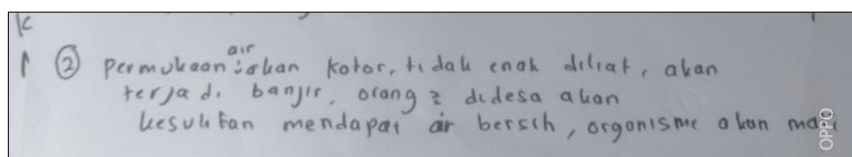 ② Permukaan air akan kotor, tidak enak diliat, akan
terjadi banjir, orang2 didesa akan
kesulitan mendapat air bersih, organisme akan mati
OPPO